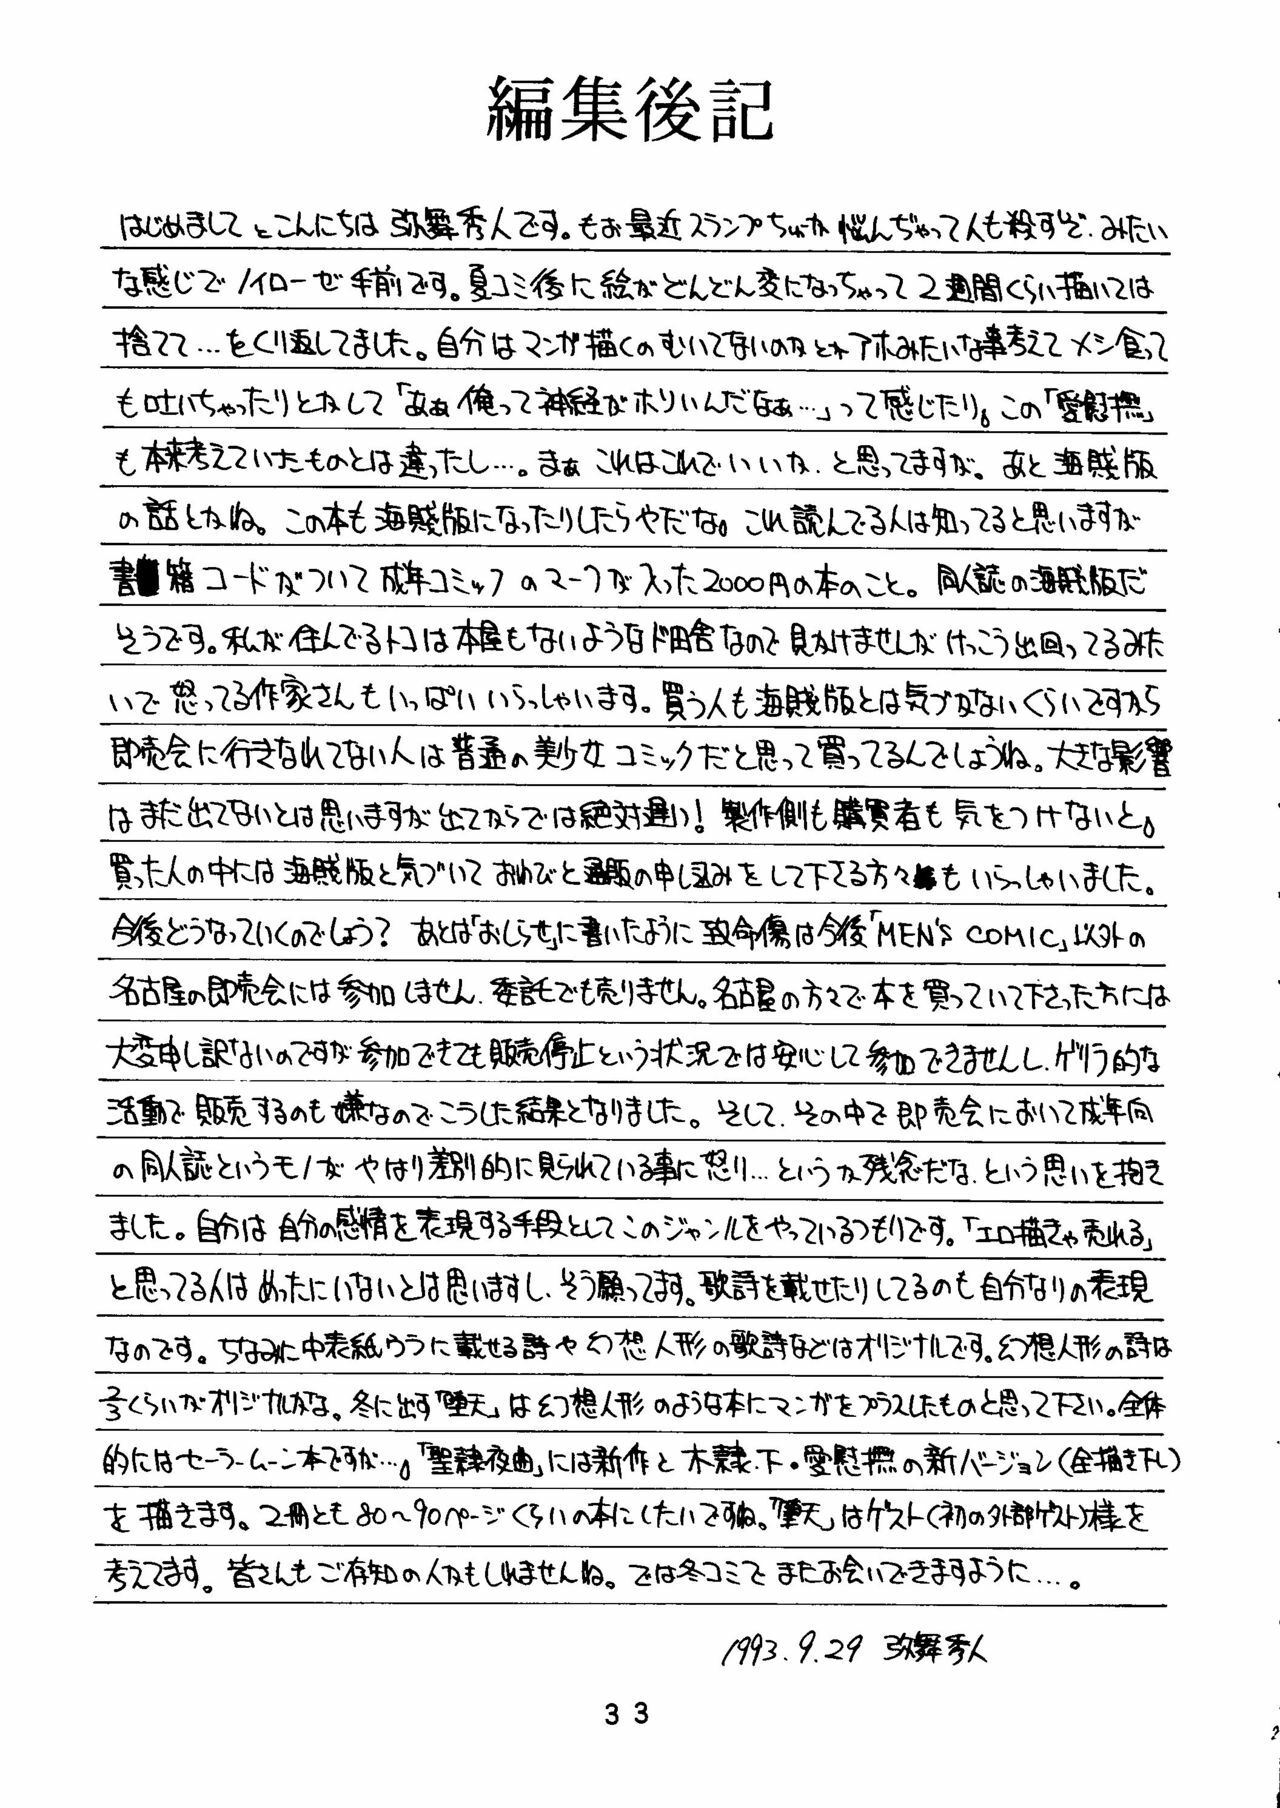 編集後記
はじめまして とこんにちは 弥舞秀人です。もぉ最近スランプちゅーか 悩んぢゃって人も殺すぞ、みたい
な感じでノイローゼ手前です。夏コミ後に絵がどんどん変になっちゃって2週間くらい描いては
捨てて…をくり返してました。自分はマンガ描くのむいてないのかとかアホみたいな事考えてメシ食って
も吐いちゃったりとかして「あぁ俺って神経がホソいんだなぁ…」って感じたり。この「愛慰撫」
も本来考えていたものとは違ったし…。まぁこれはこれでいいか、と思ってますが。あと海賊版
の話とかね。この本も海賊版になったりしたらやだな。これ読んでる人は知ってると思いますが
書籍コードがついて成年コミックのマークが入った2000円の本のこと。同人誌の海賊版だ
そうです。私が住んでるトコは本屋もないようなド田舎なので見かけませんがけっこう出回ってるみた
いで怒ってる作家さんもいっぱいいらっしゃいます。買う人も海賊版とは気づかないくらいですから
即売会に行きなれてない人は普通の美少女コミックだと思って買ってるんでしょうね。大きな影響
はまだ出てないとは思いますが出てからでは絶対遅い!製作側も購買者も気をつけないと。
買った人の中には海賊版と気づいておわびと通販の申し込みをして下さる方々もいらっしゃいました。
今後どうなっていくのでしょう?あとは「おしらせ」に書いたように致命傷は今後「MEN'S COMIC」以外の
名古屋の即売会には参加しません、委託でも売りません。名古屋の方々で本を買っていて下さった方には
大変申し訳ないのですが参加できても販売停止という状況では安心して参加できませんし、ゲリラ的な
活動で販売するのも嫌なのでこうした結果となりました。そして、その中で即売会において成年向
の同人誌というモノがやはり差別的に見られている事に怒り…というか残念だな、という思いを抱き
ました。自分は自分の感情を表現する手段としてこのジャンルをやっているつもりです。「エロ描きゃ売れる」
と思ってる人はめったにいないとは思いますし、そう願ってます。歌詩を載せたりしてるのも自分なりの表現
なのです。ちなみに中表紙ウラに載せる詩や幻想人形の歌詩などはオリジナルです。幻想人形の詩は
2/3くらいがオリジナルかな。冬に出す「堕天」は幻想人形のような本にマンガをプラスしたものと思って下さい。全体
的にはセーラームーン本ですが…。「聖隷夜曲」には新作と木隷下・愛慰撫の新バージョン(全描き下し)
を描きます。2冊とも80〜90ページくらいの本にしたいですね。「堕天」はゲスト(初の外部ゲスト)様を
考えてます。皆さんもご存知の人かもしれませんね。では冬コミでまたお会いできますように…。
1993.9.29 弥舞秀人
33